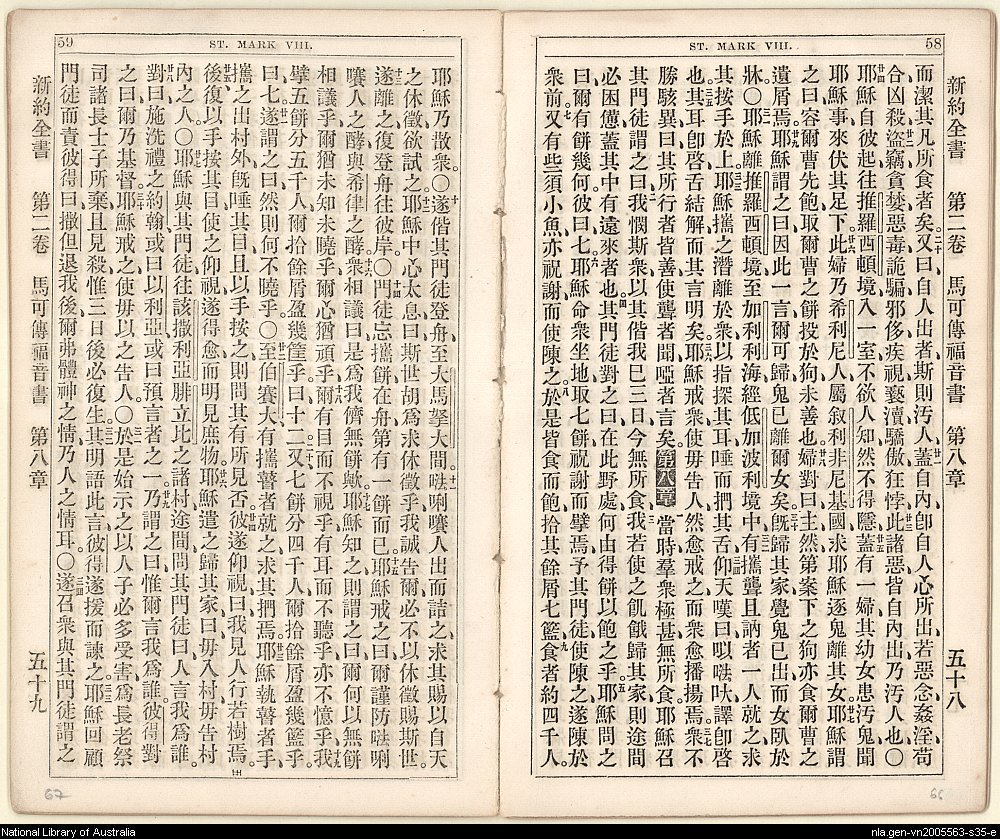 58
ST. MARK VIII.
新約全書 第二卷 馬可傳福音書 第八章 五十八
而潔其凡所食者矣又曰自人出者斯則污人蓋自內卽自人心所出若惡念姦淫苟
合凶殺盜竊貪婪惡毒詭騙邪侈疾視褻瀆驕傲狂悖此諸惡皆自內出乃污人也〇
耶穌自彼起往推羅西頓境入一室不欲人知然不得隱蓋有一婦其幼女患污鬼聞
耶穌事來伏其足下此婦乃希利尼人屬叙利非尼基國求耶穌逐鬼離其女耶穌謂
之曰容爾曹先飽取爾曹之餅投於狗未善也婦對曰主然第案下之狗亦食爾曹之
遺屑焉耶穌謂之曰因此一言爾可歸鬼已離爾女矣旣歸其家覺鬼已出而女臥於
牀〇耶穌離推羅西頓境至加利利海經低加波利境中有攜聾且訥者一人就之求
其按手於上耶穌攜之潛離於衆以指探其耳唾而捫其舌仰天嘆曰㕽㕷吠譯卽啓
也其耳卽啓舌結解而其言明矣耶穌戒衆使毋告人然愈戒之而衆愈播揚焉衆不
勝駭異曰其所行者皆善使聾者聞啞者言矣第八章當時羣衆極甚無所食耶穌召
其門徒謂之曰我憫斯衆以其偕我已三日今無所食我若使之飢餓歸其家則途間
必困憊蓋其中有遠來者也其門徒對之曰在此野處何由得餅以飽之乎耶穌問之
曰爾有餅幾何彼曰七耶穌命衆坐地取七餅祝謝而擘焉予其門徒使陳之遂陳於
衆前又有些須小魚亦祝謝而使陳之於是皆食而飽拾其餘屑七籃食者約四千人
59
ST. MARK VIII.
耶穌乃散衆〇遂偕其門徒登舟至大馬拏大間㕽唎嚽人出而詰之求其賜以自天
之休徵欲試之耶穌中心太息曰斯世胡爲求休徵乎我誠告爾必不以休徵賜斯世
遂離之復登舟往彼岸〇門徒忘攜餅在舟第有一餅而已耶穌戒之曰爾謹防㕽唎
嚽人之酵與希律之酵衆相議曰是爲我儕無餅歟耶穌知之則謂之曰爾何以無餅
相議乎爾猶未知未曉乎爾心猶頑乎爾有目而不視乎有耳而不聽乎亦不憶乎我
擘五餅分五千人爾拾餘屑盈幾筐乎曰十二又七餅分四千人爾拾餘屑盈幾籃乎
曰七遂謂之曰然則何不曉乎〇至伯賽大有攜瞽者就之求其捫焉耶穌執瞽者手
攜之出村外旣唾其目且以手按之則問其有所見否彼遂仰視曰我見人行若樹焉
後復以手按其目使之仰視遂得愈而明見庶物耶穌遣之歸其家曰毋入村毋告村
內之人〇耶穌與其門徒往該撒利亞腓立比之諸村途間問其門徒曰人言我爲誰
對曰施洗禮之約翰或曰以利亞或曰預言者之一乃謂之曰惟爾言我爲誰彼得對
之曰爾乃基督耶穌戒之使毋以之告人〇於是始示之以人子必多受害爲長老祭
司諸長士子所棄且見殺惟三日後必復生其明語此言彼得遂援而諫之耶穌回顧
門徒而責彼得曰撒但退我後爾弗體神之情乃人之情耳〇遂召衆與其門徒謂之
新約全書 第二卷 馬可傳福音書 第八章 五十九
67
66
National Library of Australia
nla.gen-vn2005563-s35-e